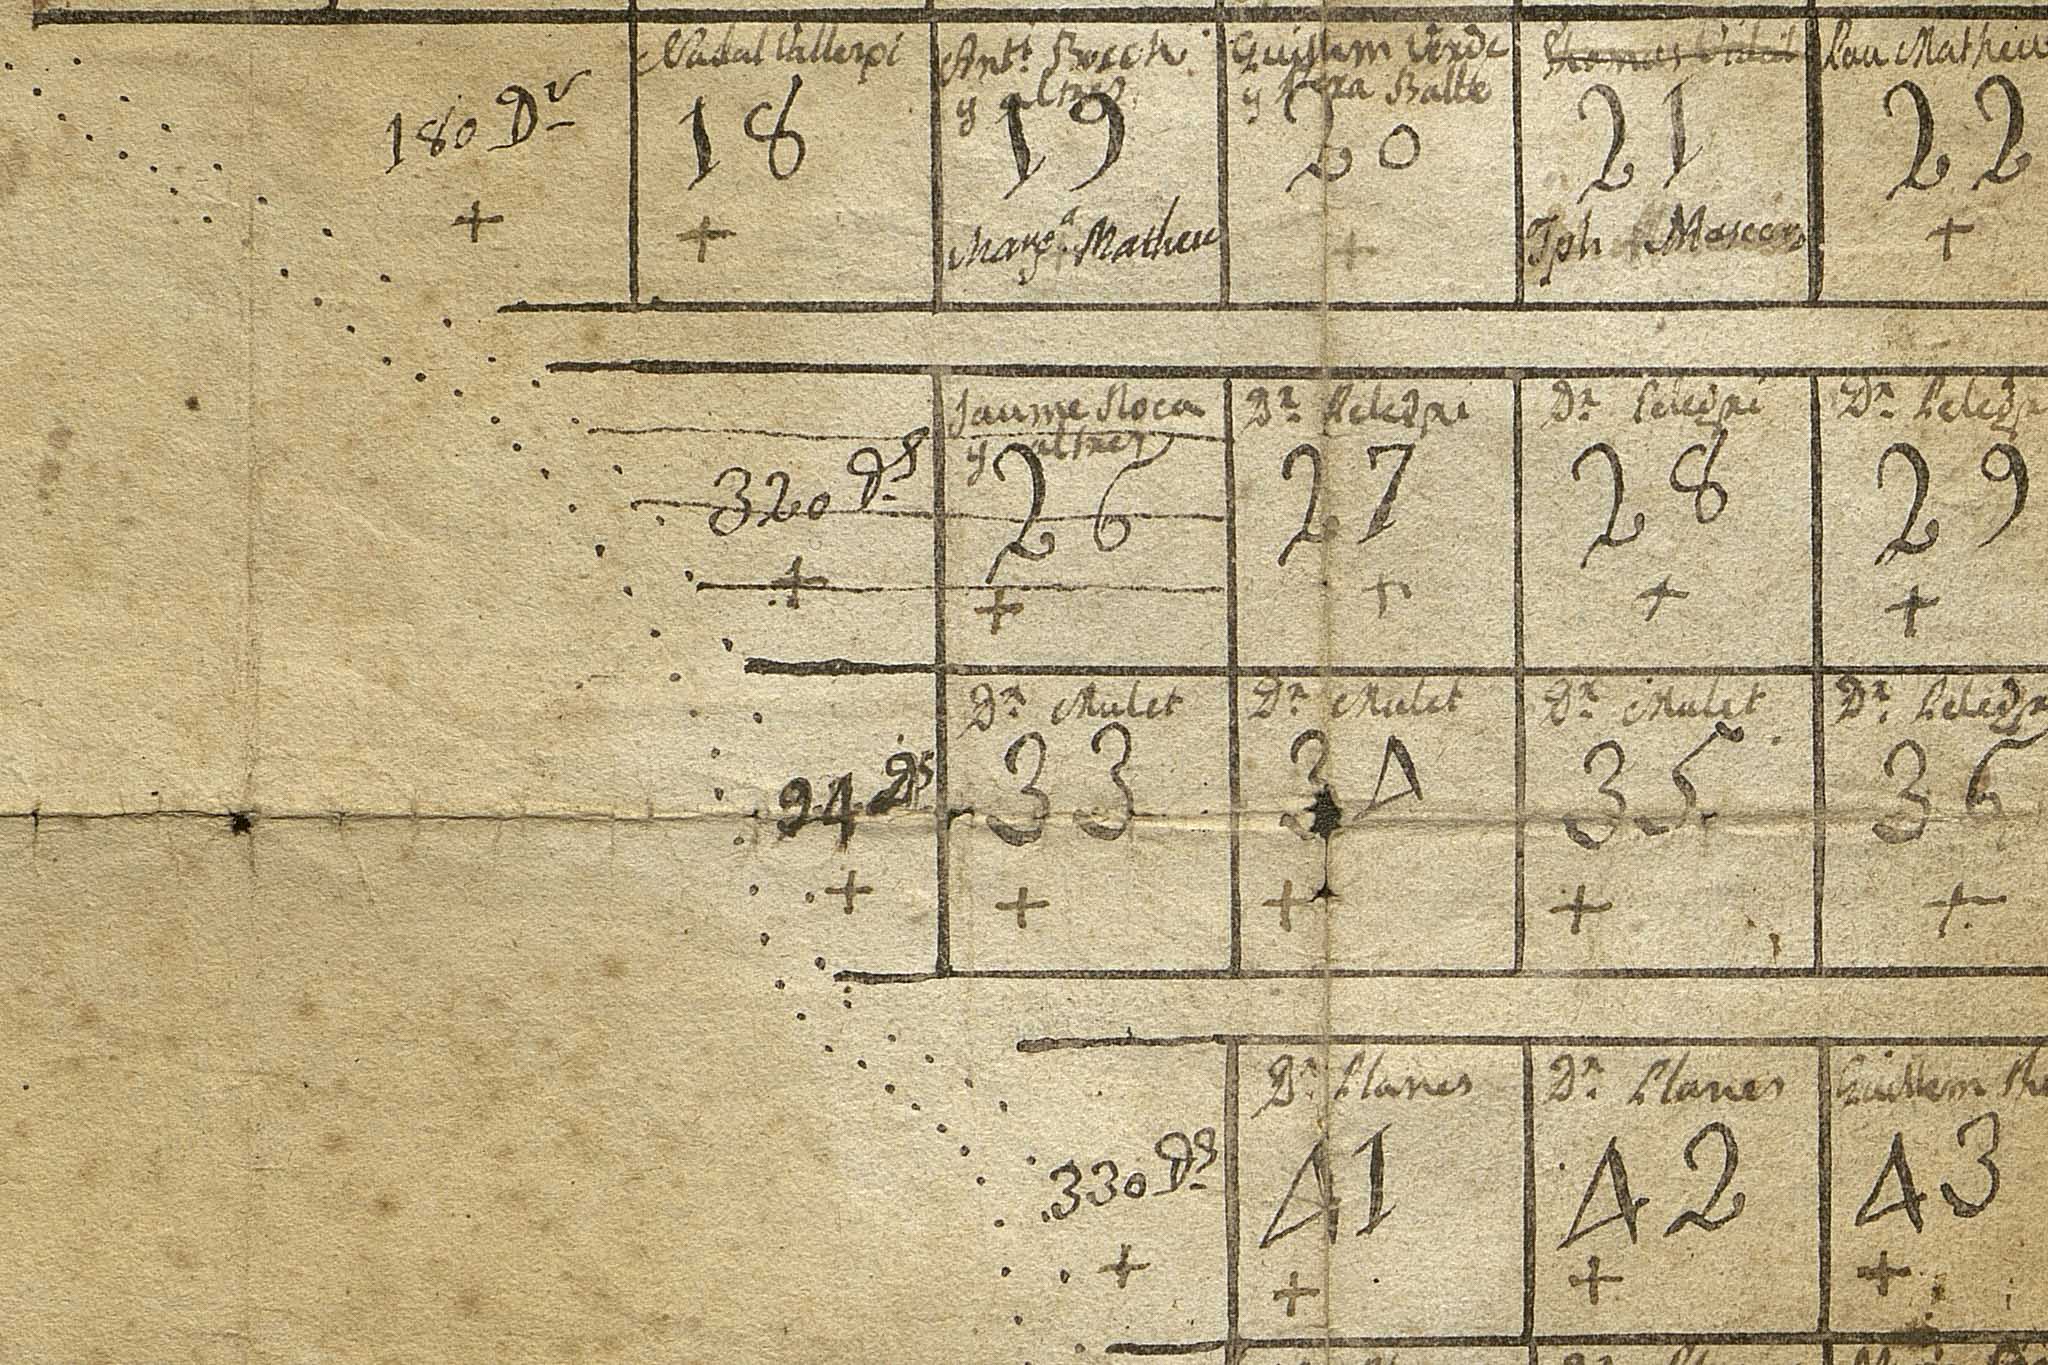 180 Dr
Nadal Vallespi
18
+
Antt. Bosch
y altres
19
Marga. Matheu
Guillem Verd
y Balle
20
+
Thomas Vidal
21
Jph Mascaro
Pau Matheu
22
+
320 Ds
+
Jaume Roca
y altres
26
+
Dn. Pelegri
27
+
Dn. Pelegri
28
+
Dn. Pelegr
29
+
94 Ds
+
Dn. Mulet
33
+
Dn. Mulet
34
+
Dn. Mulet
35
+
Dn. Pelegr
36
+
330 Ds
+
Dn. Planes
41
+
Dn. Planes
42
+
Guillem
43
+